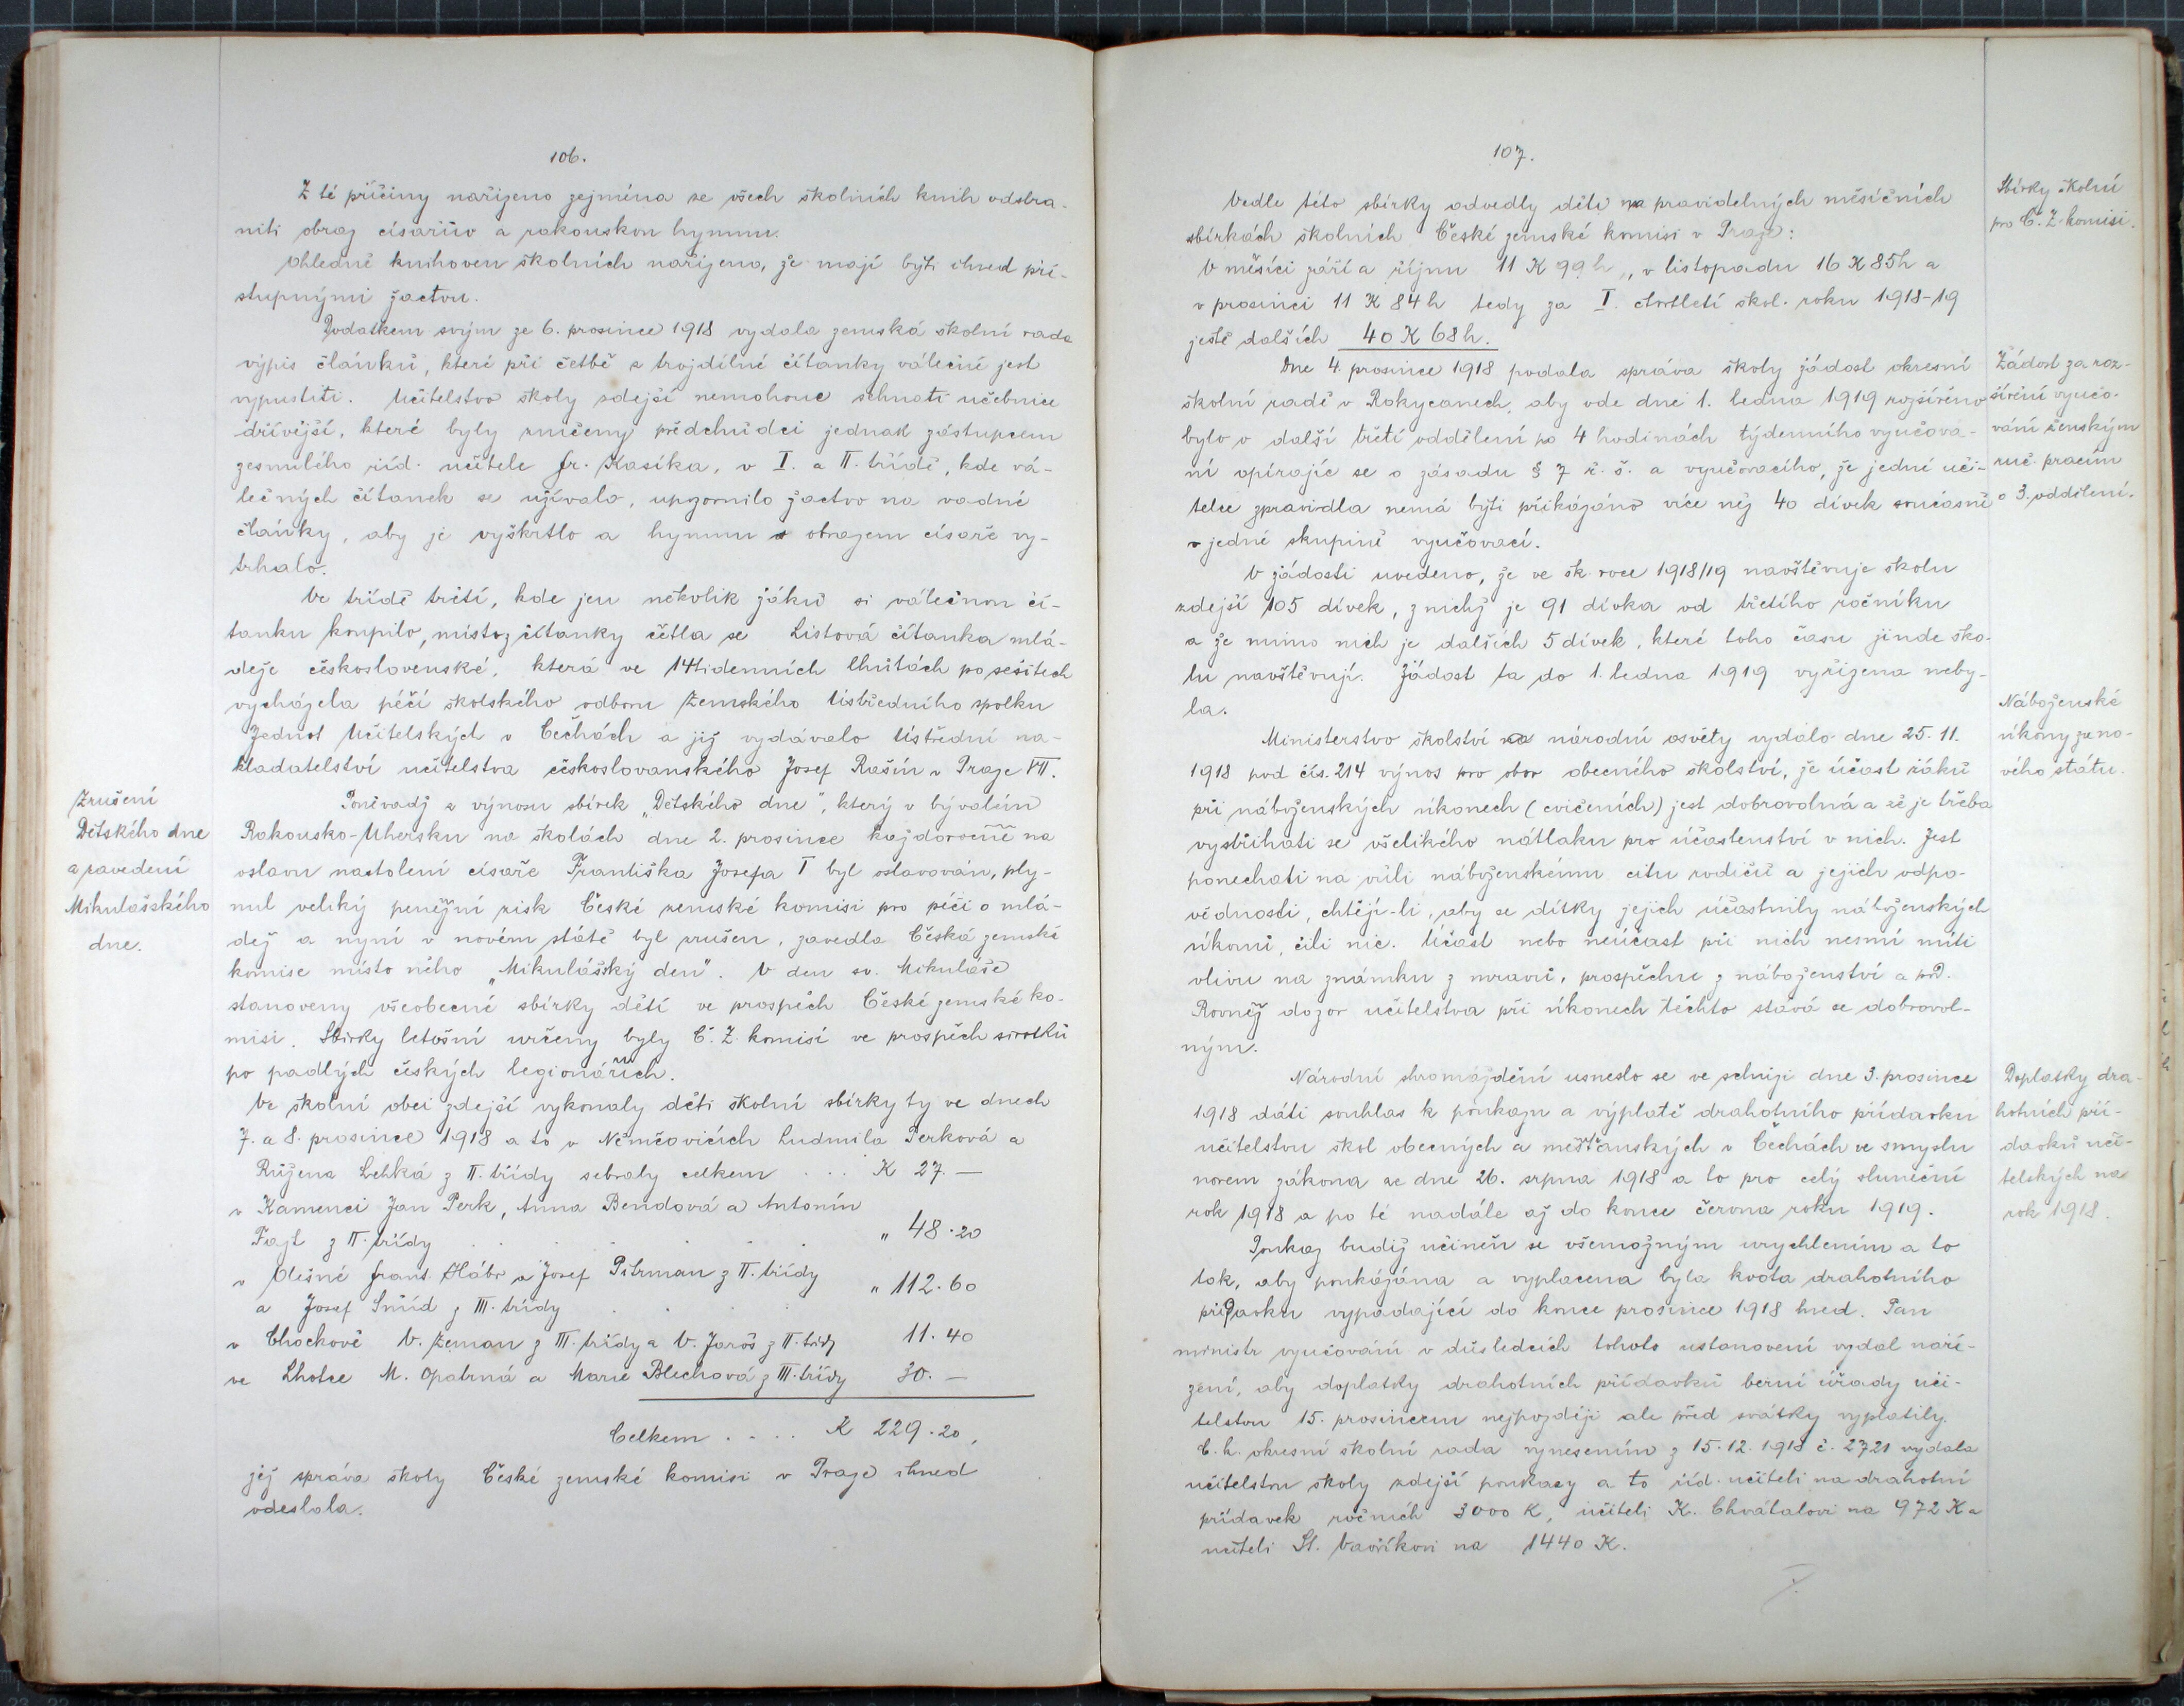 106.
Z té příčiny nařízeno zejména ze všech školních knih odstra-
niti obraz císařův a rakouskou hymnu.
Ohledně knihoven školních nařízeno, že mají býti ihned pří-
stupnými žactvu.
Dodatkem svým ze 6. prosince 1918 vydala zemská školní rada
výpis článků, které při četbě z trojdílné čítanky válečné jest
vypustiti. Učitelstvo školy zdejší nemohouc sehnati učebnice
dřívější, které byly zničeny předchůdci jednak zástupcem
zesnulého říd. učitele Fr. Kasíka, v I. a II. třídě, kde vá-
lečných čítanek se užívalo, upozornilo žactvo na vadné
články, aby je vyškrtlo a hymnu s obrazem císaře vy-
trhalo.
Ve třídě třetí, kde jen několik žáků si válečnou čí-
tanku koupilo, místo z čítanky četla se Listová čítanka mlá-
deže československé, která ve 14tidenních lhůtách po sešitech
vycházela péčí školského odboru Zemského Ústředního spolku
Jednot Učitelských v Čechách a jež vydávalo Ústřední na-
kladatelství učitelstva českoslovanského Josef Rašín v Praze VII.
Zrušení
Dětského dne
a zavedení
Mikulašského
dne.
Poněvadž z výnosu sbírek „Dětského dne", který v bývalém
Rakousko-Uhersku na školách dne 2. prosince každoročně na
oslavu nastolení císaře Františka Josefa I byl oslavován, ply-
nul veliký peněžní zisk České zemské komisi pro péči o mlá-
dež a nyní v novém státě byl zrušen, zavedla Česká zemská
komise místo něho „Mikulášský den". V den sv. Mikuláše
stanoveny všeobecné sbírky dětí ve prospěch České zemské ko-
misi. Sbírky letošní určeny byly Č. Z. komisí ve prospěch sirotků
po padlých českých legionářích.
Ve školní obci zdejší vykonaly děti školní sbírky ty ve dnech
7. a 8. prosince 1918 a to v Němčovicích Ludmila Perková a
Růžena Lehká z II. třídy sebraly celkem . . . . K 27.—
v Kamenci Jan Perk, Anna Bendová a Antonín
Fajt z II. třídy . . . . . „ 48.20
v Olešné Frant. Hábr a Josef Pitrman z II. třídy
a Josef Šmíd z III. třídy . . . . „ 112.60
v Chockově V. Zeman z III. třídy a V. Jaroš z II. třídy 11.40
ve Lhotce M. Opatrná a Marie Blechová z III. třídy 30.—
Celkem . . . . K 229.20,
jež správa školy České zemské komisi v Praze ihned
odeslala.
107.
Sbírky školní
pro Č. Z. komisi.
Vedle této sbírky odvedly děti na pravidelných měsíčních
sbírkách školních České zemské komisi v Praze:
V měsíci září a říjnu 11 K 99 h, v listopadu 16 K 85 h a
v prosinci 11 K 84 h tedy za I. čtvrtletí škol. roku 1918-19
ještě dalších 40 K 68 h.
Žádost za roz-
šíření vyučo-
vání ženským
ruč. pracím
o 3. oddělení.
Dne 4. prosince 1918 podala správa školy žádost okresní
školní radě v Rokycanech, aby ode dne 1. ledna 1919 rozšířeno
bylo o další třetí oddělení po 4 hodinách týdenního vyučová-
ní opírajíc se o zásadu § 7 ř. š. a vyučovacího, že jedné uči-
telce zpravidla nemá býti přikázáno více než 40 dívek současně
v jedné skupině vyučovací.
V žádosti uvedeno, že ve šk. roce 1918/19 navštěvuje školu
zdejší 105 dívek, z nichž je 91 dívka od třetího ročníku
a že mimo nich je dalších 5 dívek, které toho času jinde ško-
lu navštěvují. Žádost ta do 1. ledna 1919 vyřízena neby-
la.
Náboženské
úkony za no-
vého státu.
Ministerstvo školství a národní osvěty vydalo dne 25. 11.
1918 pod čís. 214 výnos pro obor obecného školství, že účast žáků
při náboženských úkonech (cvičeních) jest dobrovolná a že je třeba
vystříhati se všelikého nátlaku pro účastenství v nich. Jest
ponechati na vůli náboženskému citu rodičů a jejich odpo-
vědnosti, chtějí-li, aby se dítky jejich účastnily náboženských
úkonů, čili nic. Účast nebo neúčast při nich nesmí míti
vlivu na známku z mravů, prospěchu z náboženství a pod.
Rovněž dozor učitelstva při úkonech těchto stává se dobrovol-
ným.
Doplatky dra-
hotních pří-
davků uči-
telských na
rok 1918.
Národní shromáždění usneslo se ve schůzi dne 3. prosince
1918 dáti souhlas k poukazu a výplatě drahotního přídavku
učitelstvu škol obecných a měšťanských v Čechách ve smyslu
norem zákona ze dne 26. srpna 1918 a to pro celý sluneční
rok 1918 a po té nadále až do konce června roku 1919.
Poukaz budiž učiněn se všemožným urychlením a to
tak, aby poukázána a vyplacena byla kvota drahotního
přídavku vypadající do konce prosince 1918 hned. Pan
ministr vyučování v důsledcích tohoto ustanovení vydal naří-
zení, aby doplatky drahotních přídavků berní úřady uči-
telstvu 15. prosincem nejpozději ale před svátky vyplatily.
C. h. okresní školní rada vynesením z 15. 12. 1918 č. 2721 vydala
učitelstvu školy zdejší poukazy a to říd. učiteli na drahotní
přídavek ročních 3000 K, učiteli K. Chvátalovi na 972 K a
učiteli St. Vavříkovi na 1440 K.